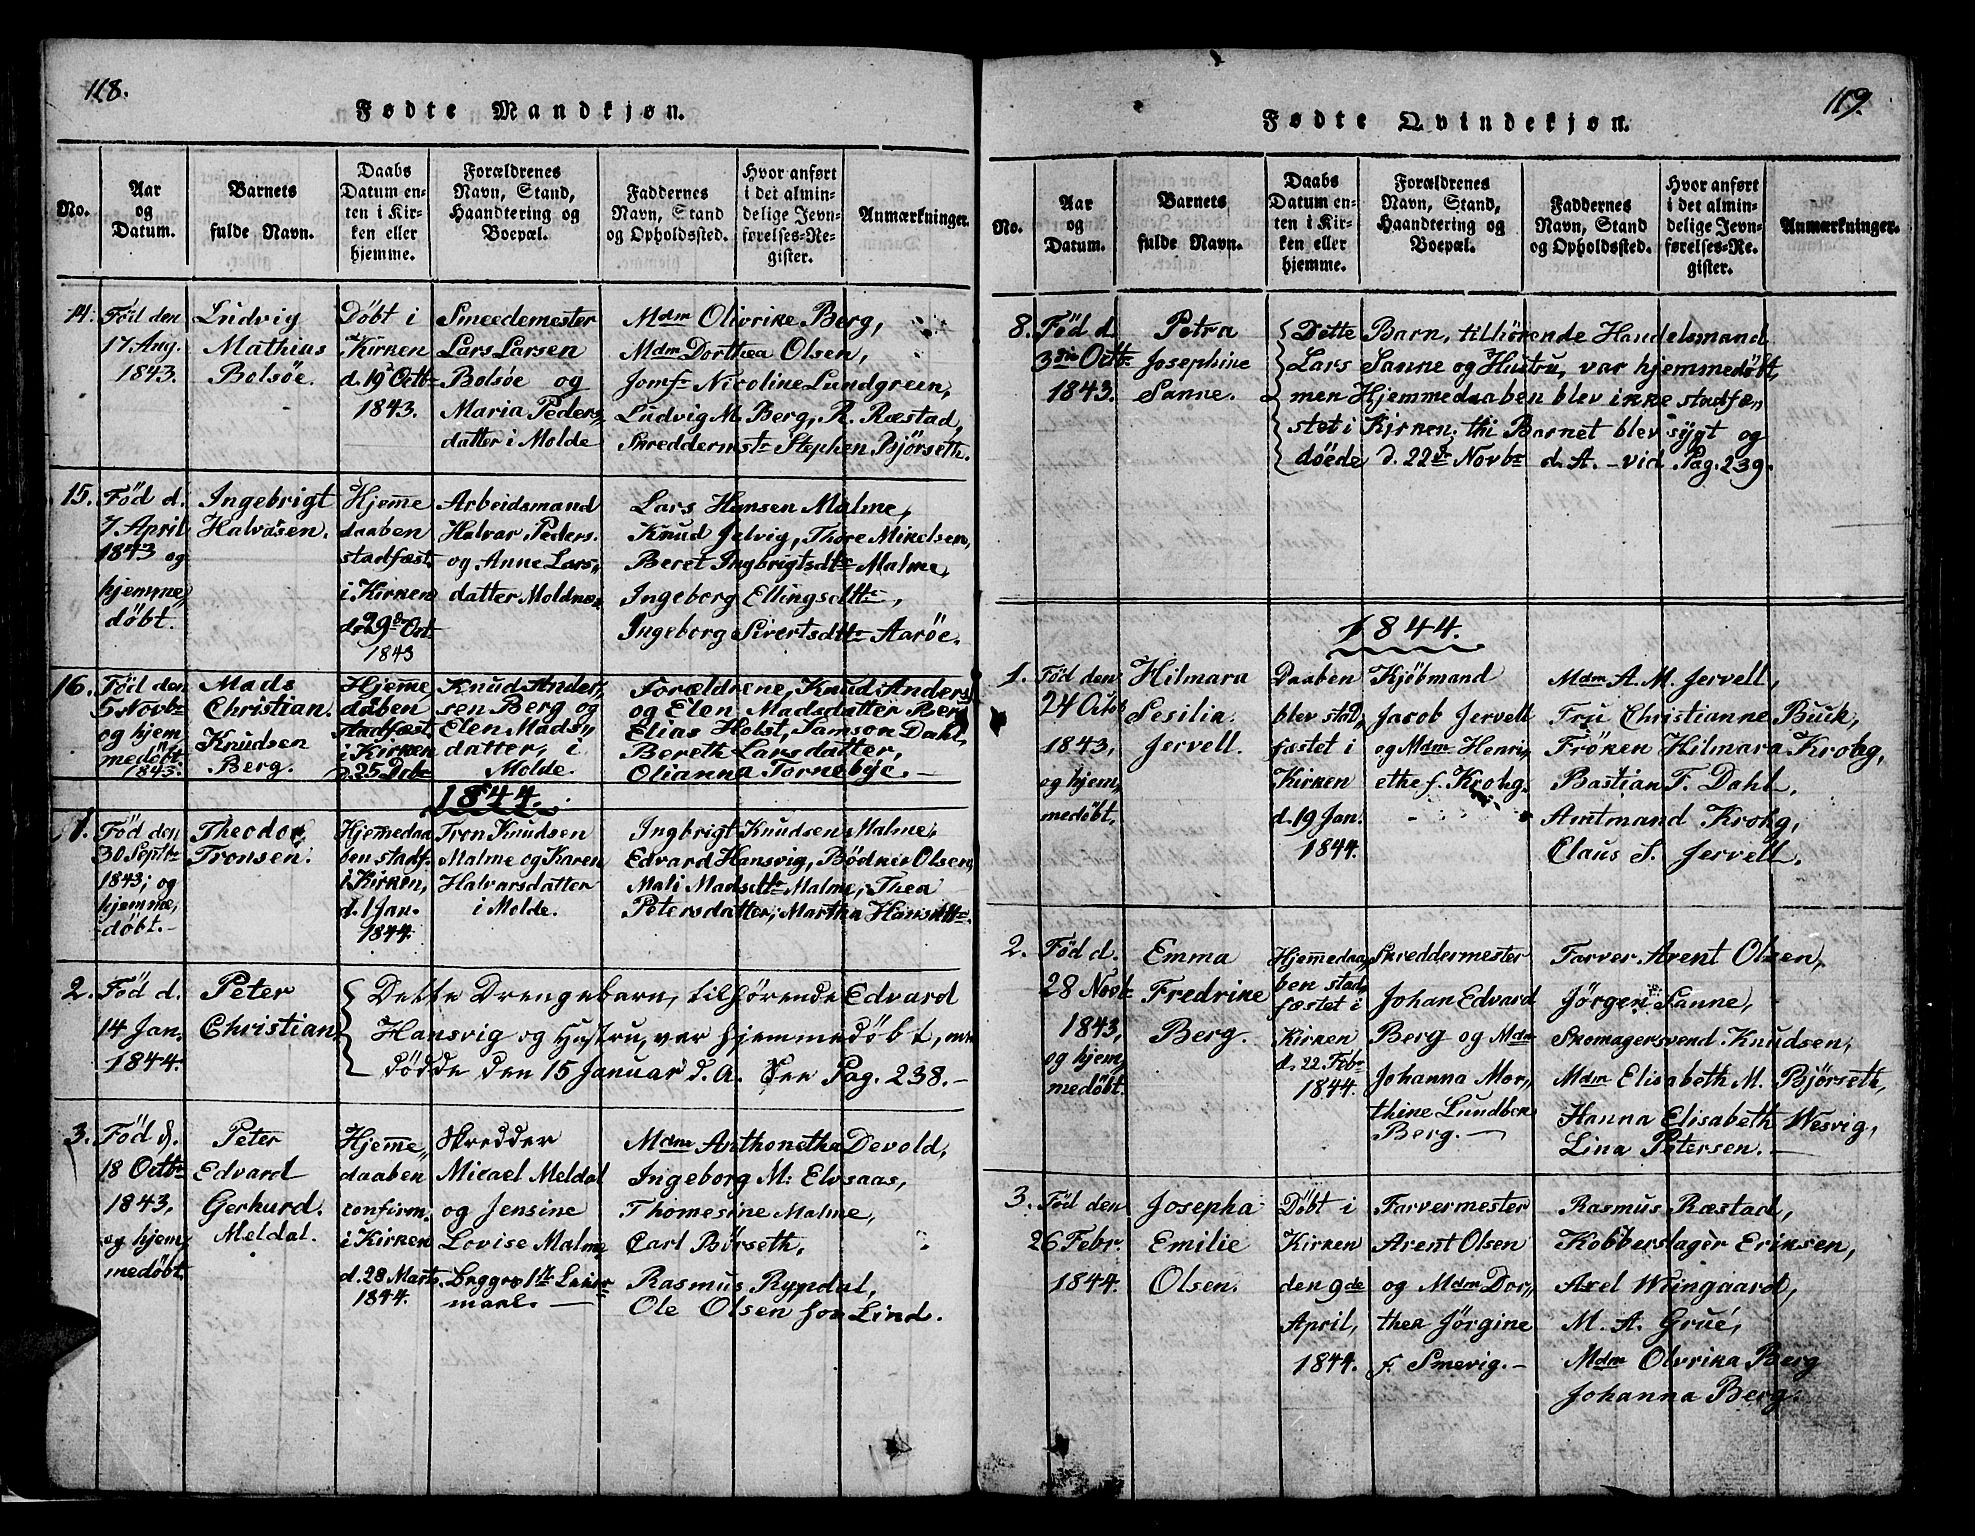 118.
Fødte Mandkjøn.
No.
Aar
og
Datum.
Barnets
fulde Navn.
Daabs
Datum en-
ten i Kir-
ken eller
hjemme.
Forældrenes
Navn, Stand,
Haandtering og
Boepæl.
Faddernes
Navn, Stand
og Opholdssted.
Hvor anført
i det almin-
delige Jevn-
førelses-Re-
gister.
Anmærkninger.
14.
Fød den
17 Aug.
1843.
Ludvig
Mathias
Bolsøe.
Döbt i
Kirken
d. 19 Octb
1843.
Smeedemester
Lars Larsen
Bolsøe og
Maria Peders,
datter i Molde
Mdm Olivrike Berg,
Mdm Dorthea Olsen,
Jomf Nicoline Lundgreen,
Ludvig M. Berg, R. Ræstad,
Skreddermst Stephen Bjørseth.
15.
Fød d.
7 April
1843 og
hjemme,
døbt.
Ingebrigt
Halvasen.
Hjeme
daaben
stadfæst
i Kirken
d. 29 Oct
1843
Arbeidsmand
Halvar Peders.
og Anne Lars,,
datter Moldnes
Lars Hansen Malme,
Knud Jelvig, Thore Mikelsen,
Beret Ingbrigtsdtt Malme,
Ingeborg Ellingsdtt,
Ingeborg Sivertsdtt Aarøe.
16.
Fød den
5 Novb
og hjem
medøbt.
1843.
Mads
Christian.
Knudsen
Berg.
Hjeme
daaben
stadfæst
i Kirken
d. 25 Dcb
Knud Ander,
sen Berg og
Elen Mads,,
datter, i
Molde.
Forældrene, Knud Anders
og Elen Madsdatter Berg
Elias Holst, Samson Dahl,
Bereth Larsdatter,
Olianna Tornebye.
1844.
1.
Fød den
30 Septb
1843; og
hjemme,
døbt.
Theodor
Tronsen.
Hjemedaa
ben stadf.
i Kirken,
d. 1 Jan.
1844.
Tron Knudsen
Malme og Karen
Halvarsdatter
i Molde.
Ingbrigt Knudsens Malme,
Edvard Hansvig, Bødker Olsen,
Mali Madsdtt Malme, Thea
Petersdatter, Martha Hansdtt.
2.
Fød d.
14 Jan.
1844.
Peter
Christian,
Dette Drengebarn, tilhørende Edvard
Hansvig og Hustru, var hjemmedøbt, men
dødde den 15 Januar d. A. See Pag. 238.
3.
Fød d.
18 Octb
1843,
og hjem
medøbt.
Peter
Edvard
Gerhurd.
Meldal.
Hjeme,,
daaben
confirm.
i Kirken
d. 28 Marts
1844.
Skredder
Micael Meldal
og Jensine
Lovise Malme
Mdm Anthonetha Devold,
Ingeborg M: Elvsaas,
Thomesine Malme,
Carl Børseth,
Rasmus Rypdal,
Ole Olsen Lind.
119.
Fødte Qvindekjøn.
No.
Aar
og
Datum.
Barnets
fulde Navn.
Daabs
Datum en-
ten i Kir-
ken eller
hjemme.
Forældrenes
Navn, Stand,
Haandtering og
Boepæl.
Faddernes
Navn, Stand
og Opholdssted.
Hvor anført
i det almin-
delige Jevn-
førelses-Re-
gister.
Anmærkninger.
8.
Fød d.
3die Octb
1843.
Petra
Josephine
Sanne.
Dette Barn, tilhörende Handelsmand
Lars Sanne og Hustru, var hjemmedøbt,
men Hjemmedaaben blev ikke stadfæ,,
stet i Kirken; thi Barnet blev sygt og
döede d. 22de Novb d. A. - vid Pag. 239.
1844.
1.
Fød den
24 Octb
1843,
og hjem,
medøbt.
Hilmara
Sesilia.
Jervell.
Daaben
blev stad,
fæstet i
Kirken
d. 19 Jan.
1844.
Kjøbmand
Jacob Jervell
og Mdm Henri,
ethe f. Krohg.
Mdm A. M. Jervell,
Fru Christianne Buck,
Fröken Hilmara Krohg,
Bastian F. Dahl,
Amtmand Krohg,
Claus S. Jervell.
2.
Fød d.
28 Novb
1843,
og hjem,
medøbt.
Emma
Fredrike
Berg.
Hjemmedaa,
ben stad,
fæstet i
Kirken
d. 22 Feb
1844.
Skreddermester
Johan Edvard
Berg og Mdm
Johanna Mor,,
thine Lundbor
Berg.
Farver Arent Olsen,
Jörgen Sanne,
Skomagersvend Knudsen,
Mdm Elisabeth M. Bjørseth,
Hanna Elisabeth Wesvig,
Lina Petersen.
3.
Fød den
26 Febr.
1844.
Josepha
Emilie
Olsen.
Döbt i
Kirken
den 9de
April,
1844.
Farvermester
Arent Olsen
og Mdm Dor,,
thea Jörgine
f. Smevig.
Rasmus Ræstad,
Kobberslager Eriksen,
Axel Wiingaard,
M. A. Grue,
Mdm Olvrika Berg
Johanna Berg.